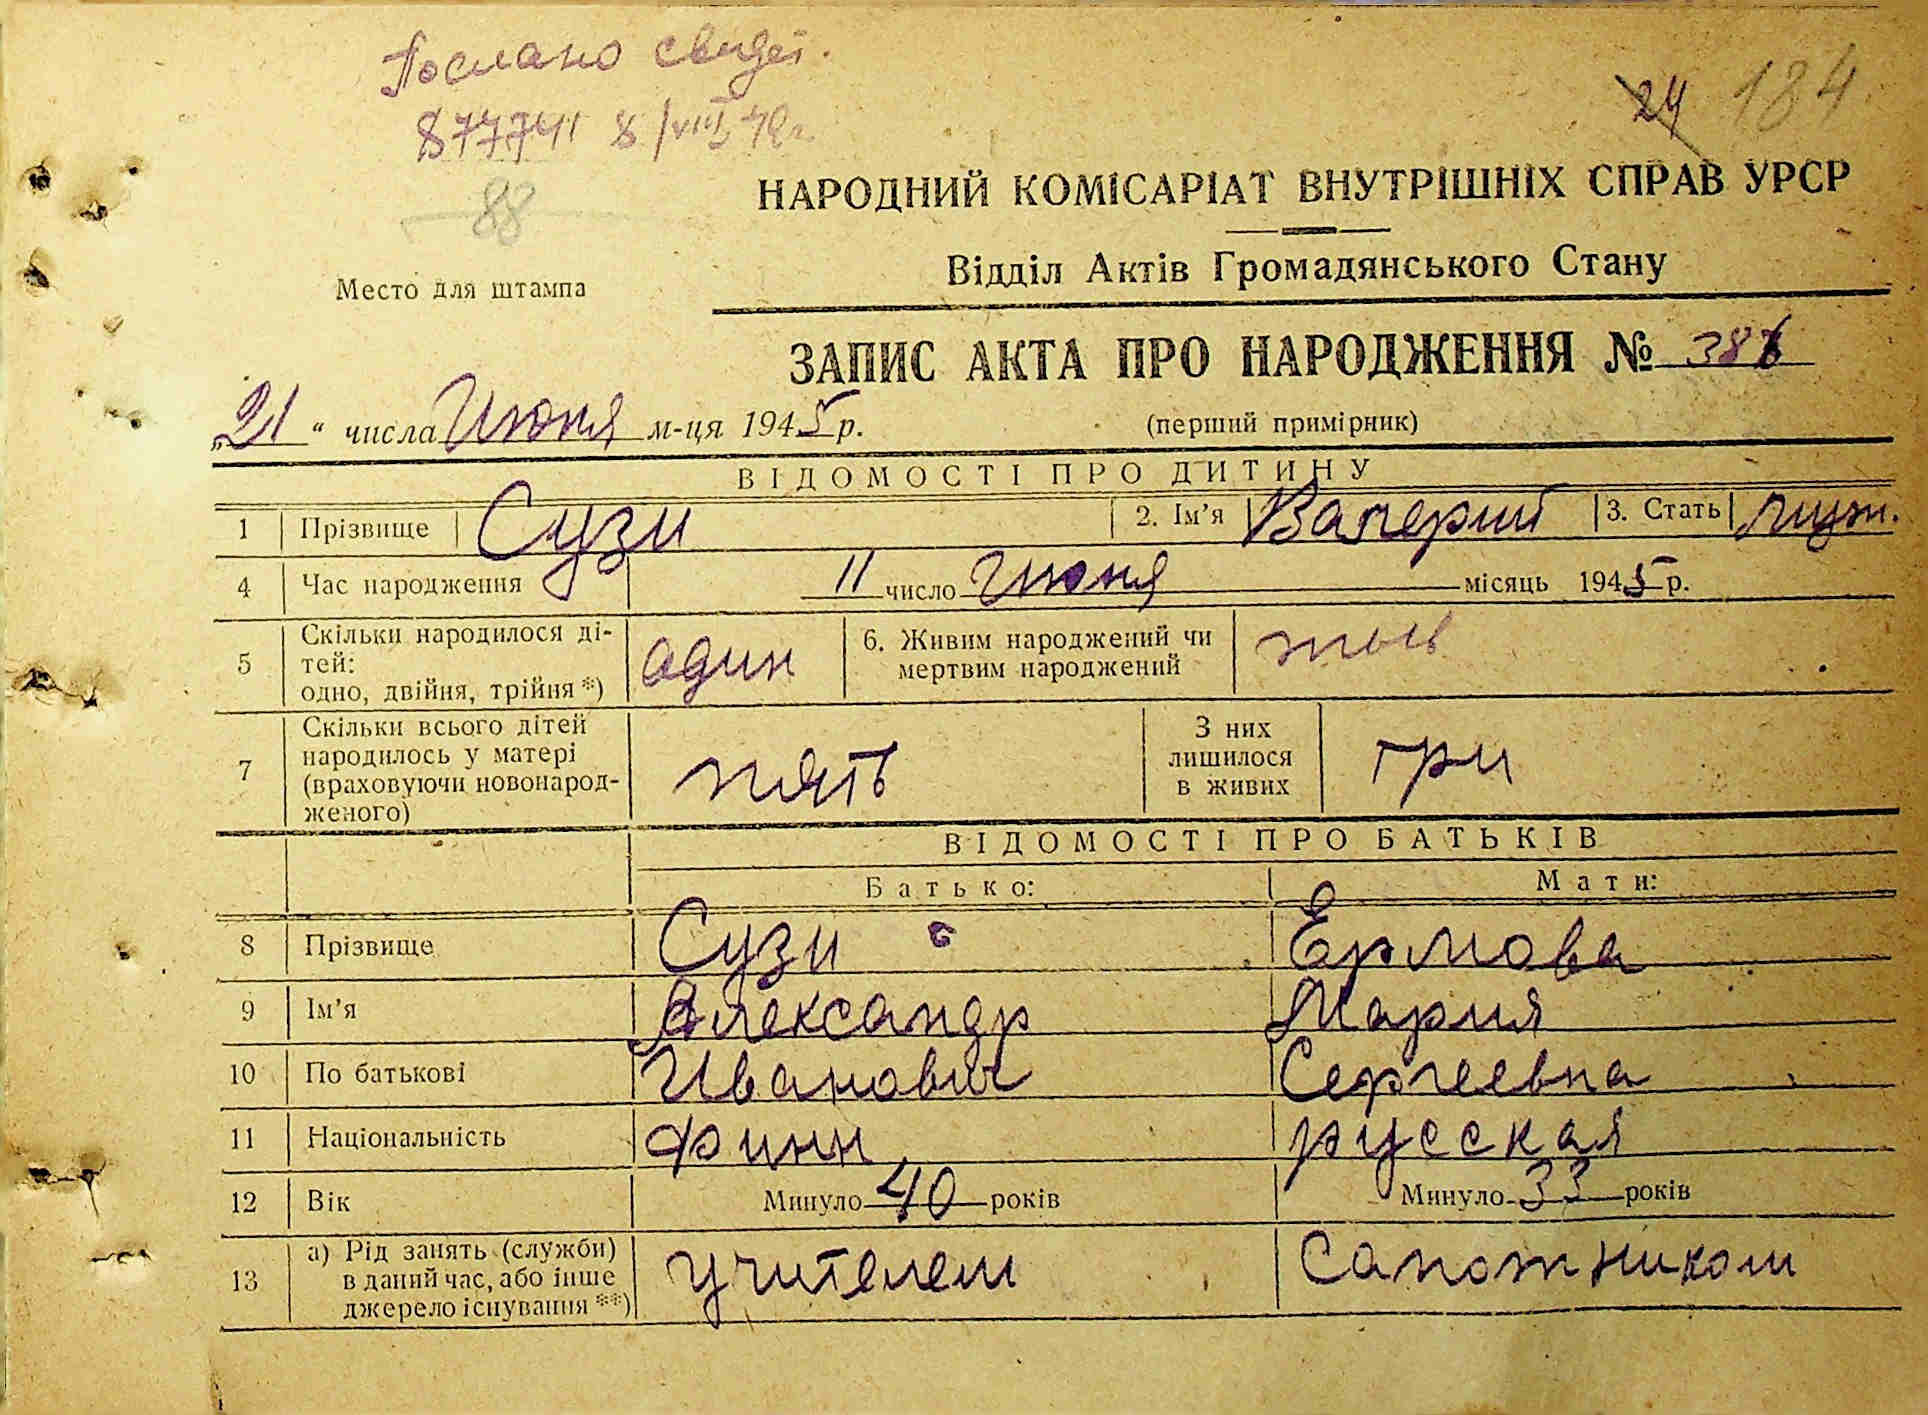 Послано свидет.
877741 8/VIII 48 г.
24 184
88
НАРОДНИЙ КОМІСАРІАТ ВНУТРІШНІХ СПРАВ УРСР
Відділ Актів Громадянського Стану
Место для штампа
ЗАПИС АКТА ПРО НАРОДЖЕННЯ №
„21“ числа Июня м-ця 1945 р. (перший примірник)
ВІДОМОСТІ ПРО ДИТИНУ
1 Прізвище Сузи 2. Ім'я Валерий 3. Стать муж.
4 Час народження 11 число Июня місяць 1945 р.
5 Скільки народилося ді-
тей:
одно, двійня, трійня *) один 6. Живим народжений чи
мертвим народжений
7 Скільки всього дітей
народилось у матері
(враховуючи новонарод-
женого) пять З них
лишилося
в живих три
ВІДОМОСТІ ПРО БАТЬКІВ
Батько: Мати:
8 Прізвище Сузи Ермова
9 Ім'я Александр Мария
10 По батькові Иванович Сергеевна
11 Національність Финн русская
12 Вік Минуло 40 років Минуло 33 років
13 а) Рід занять (служби)
в даний час, або інше
джерело існування **) учителем Сапожником